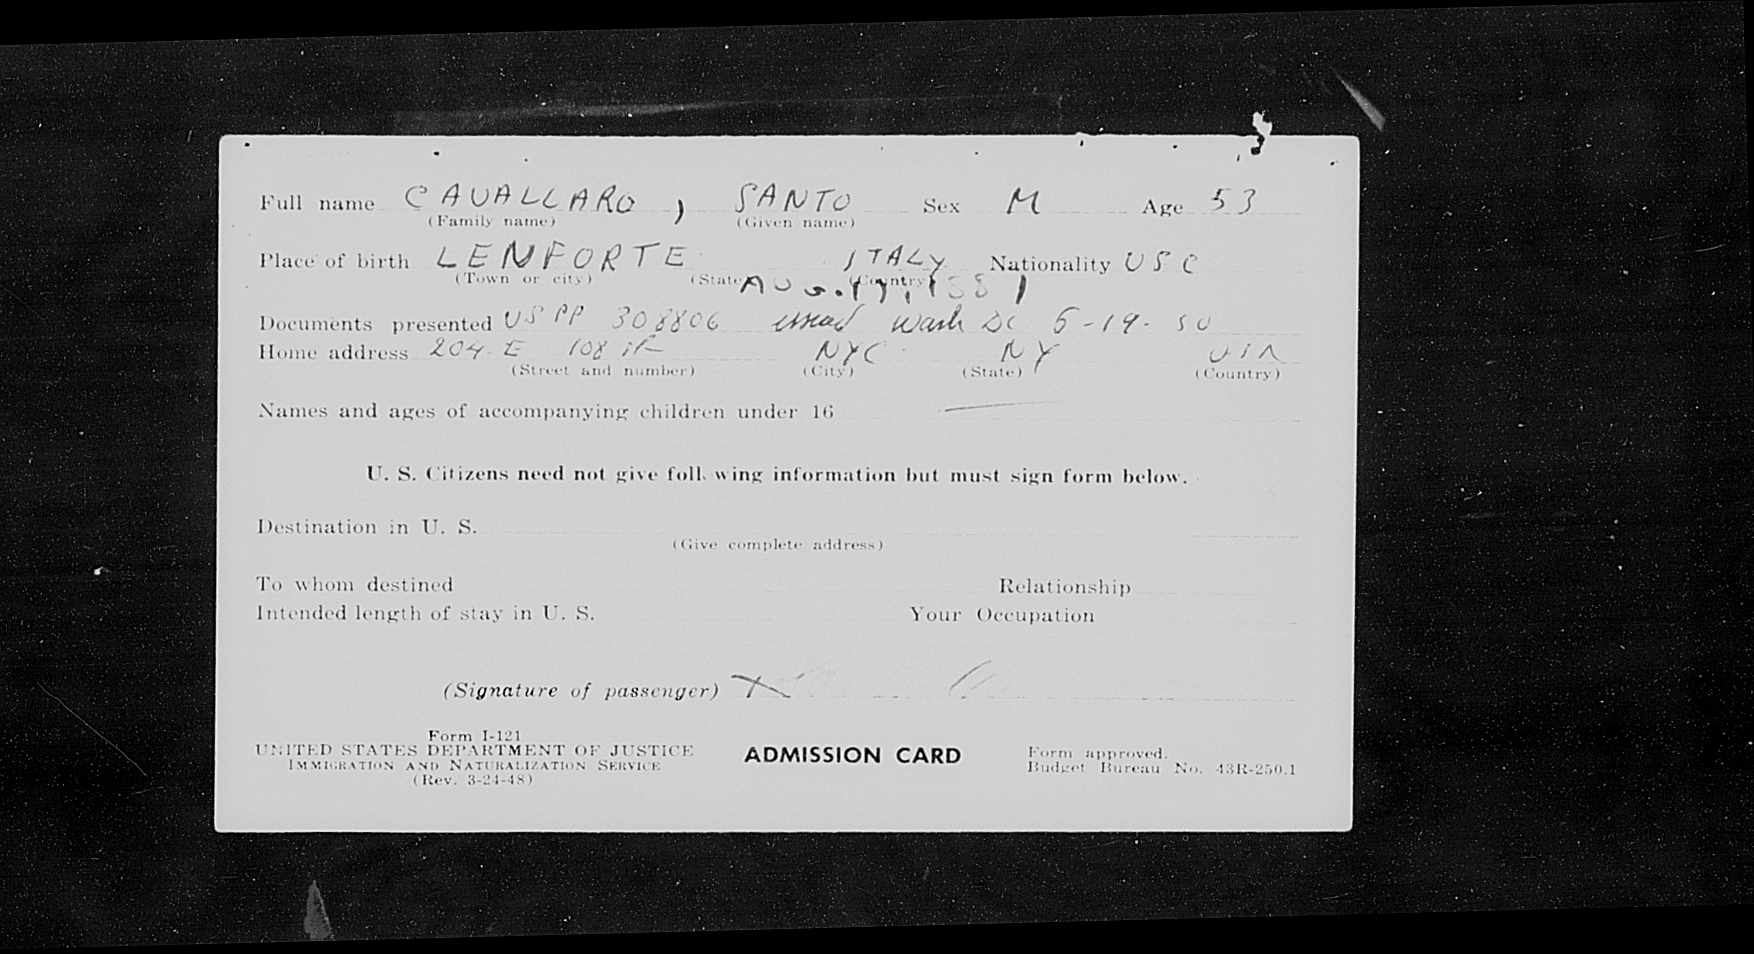 Full name CAVALLARO, SANTO Sex M Age 53
(Family name) (Given name)
Place of birth LENFORTE ITALY Nationality USC
(Town or city) (State (Country
Documents presented US PP 308806 issued Wash DC 5-19-50
Home address 204 E 108 NYC NY
(Street and number) (City) (State) (Country)
Names and ages of accompanying children under 16 —
U. S. Citizens need not give foll wing information but must sign form below.
Destination in U. S.
(Give complete address)
To whom destined Relationship
Intended length of stay in U. S. Your Occupation
(Signature of passenger) X
Form I-121
UNITED STATES DEPARTMENT OF JUSTICE
IMMIGRATION AND NATURALIZATION SERVICE
(Rev. 3-24-48)
ADMISSION CARD
Form approved.
Budget Bureau No. 43R-250.1